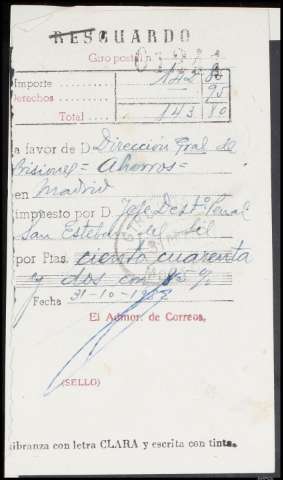 RESGUARDO
Giro postal n.
Importe ........ 142 85
Derechos ........ 95
Total .... 143 80
a favor de D Dirección Gral de
Prisiones = Ahorros =
en Madrid
impuesto por D Jefe Dest.º Penal
San Esteban del Sil
por Ptas. ciento cuarenta
y dos con 85 %
Fecha 31-10-1957
El Admor. de Correos,
(SELLO)
libranza con letra CLARA y escrita con tinta.